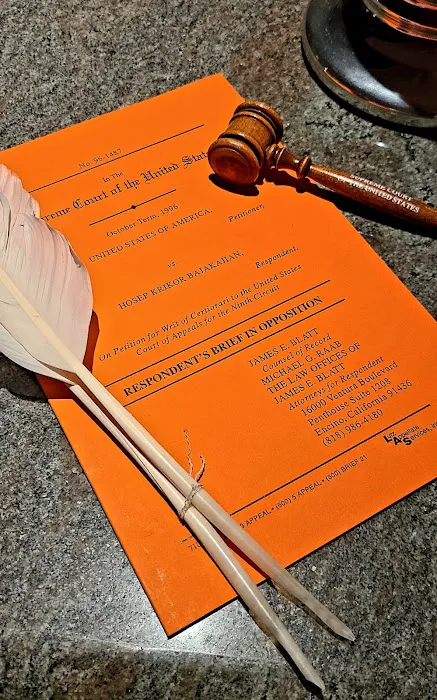 No. 96-1487
In The
reme Court of the United Stat
October Term, 1996
UNITED STATES OF AMERICA,
Petitioner,
vs.
HOSEP KRIKOR BAJAKAJIAN,
Respondent.
On Petition for Writ of Certiorari to the United States
Court of Appeals for the Ninth Circuit
RESPONDENT'S BRIEF IN OPPOSITION
JAMES E. BLATT
Counsel of Record
MICHAEL G. RAAB
THE LAW OFFICES OF
JAMES E. BLATT
Attorneys for Respondent
16000 Ventura Boulevard
Penthouse Suite 1208
Encino, California 91436
(818) 986-4180
Los Angeles
9 APPEAL • (800) 5 APPEAL • (800) BRIEF 21
SUPREME COURT
UNITED STATES